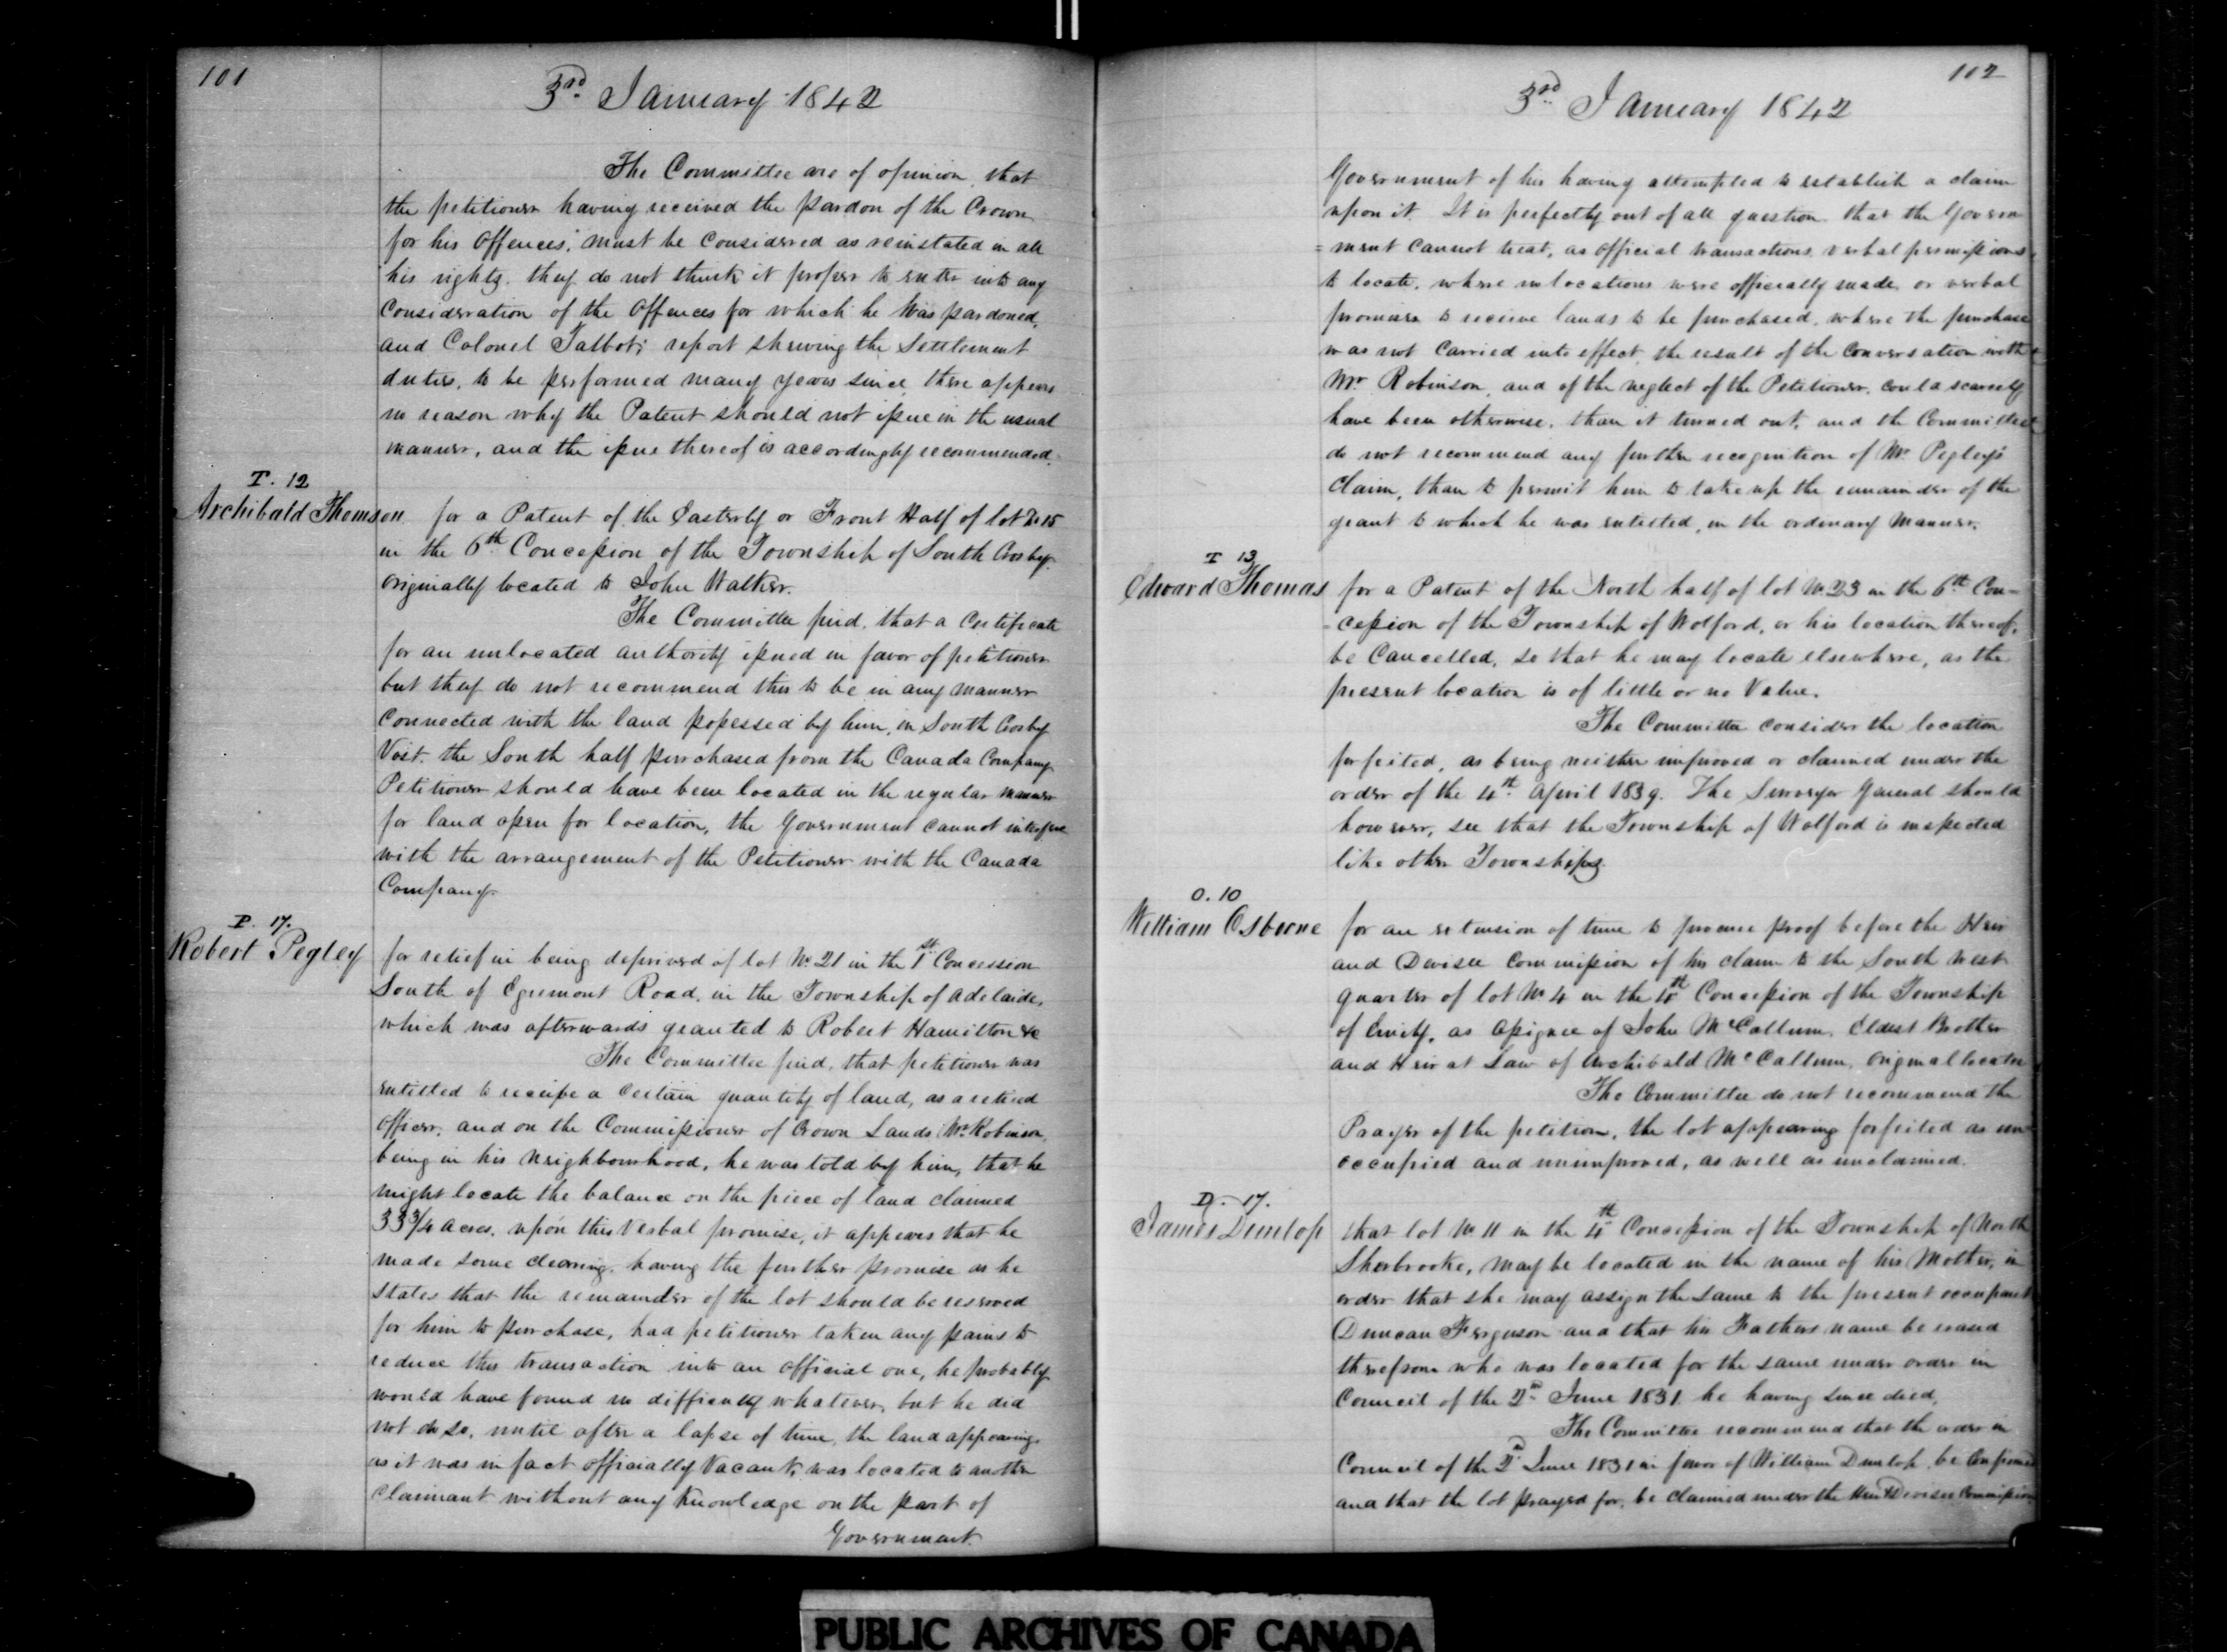 101
3rd January 1842
The Committee are of opinion, that
the petitioner having received the pardon of the Crown
for his Offences, must be considered as reinstated in all
his rights. they do not think it proper to enter into any
Consideration of the Offences for which he was pardoned,
and Colonel Talbots report shewing the Settlement
duties, to be performed many years since, there appears
no reason why the Patent should not issue in the usual
manner, and the issue thereof is accordingly recommended.
T. 12
Archibald Thomson for a Patent of the Easterly or Front Half of lot No 15
in the 6th Concession of the Township of South Crosby.
originally located to John Walker.
The Committee find, that a Certificate
for an unlocated authority issued in favor of petitioner
but they do not recommend this to be in any manner
Connected with the land possessed by him, in South Crosby
Vist. the South half purchased from the Canada Company
Petitioner should have been located in the regular manner
for land open for location, the Government cannot interfere
with the arrangement of the Petitioner with the Canada
Company.
P. 17.
Robert Pegley for relief in being deprived of lot No 21 in the 1st Concession
South of Egremont Road, in the Township of Adelaide,
which was afterwards granted to Robert Hamilton &c
The Committee find, that petitioner was
entitled to receive a Certain quantity of land, as a retired
officer, and on the Commissioner of Crown Lands Mr Robinson,
being in his neighbourhood, he was told by him, that he
might locate the balance on the piece of land claimed
33 3/4 acres. upon this Verbal promise, it appears that he
made some clearing, having the further promise as he
states that the remainder of the lot should be reserved
for him to purchase, had petitioner taken any pains to
reduce this transaction into an official one, he probably
would have found no difficulty whatever, but he did
not do so, until after a lapse of time, the land appearing
as it was in fact officially Vacant, was located to another
Claimant without any knowledge on the part of
Government.
102
3rd January 1842
Government of his having attempted to establish a claim
upon it. It is perfectly out of all question that the Govern
=ment cannot treat, as official transactions verbal permissions
to locate, where no locations were officially made, or verbal
promises to receive lands to be purchased, where the purchase
was not carried into effect, the result of the conversation with
Mr Robinson, and of the neglect of the Petitioner, could scarcely
have been otherwise, than it turned out, and the Committee
do not recommend any further recognition of Mr Pegley's
Claim, than to permit him to take up the remainder of the
grant to which he was entitled, in the ordinary manner.
T 13
Edward Thomas for a Patent of the North half of lot No 23 in the 6th Con=
=cession of the Township of Wolford, or his location thereof,
be Cancelled, so that he may locate elsewhere, as the
present location is of little or no Value.
The Committee consider the location
forfeited, as being neither improved or claimed under the
order of the 4th April 1839. The Surveyor General should
however, see that the Township of Wolford is inspected
like other Townships.
O. 10
William Osborne for an extension of time to produce proof before the Heir
and Devisee Commission of his claim to the South West
quarter of lot No 4 in the 4th Concession of the Township
of Emily, as Assignee of John McCallum, Eldest Brother
and Heir at Law of Archibald McCallum, original locatee
The Committee do not recommend the
Prayer of the petition, the lot appearing forfeited as un
occupied and unimproved, as well as unclaimed.
D. 17.
James Dunlop that lot No 11 in the 4th Concession of the Township of North
Sherbrooke, may be located in the name of his Mother, in
order that she may assign the same to the present occupant
Duncan Ferguson and that his Fathers name be erased
therefrom who was located for the same under order in
Council of the 2nd June 1831 he having since died,
The Committee recommend that the order in
Council of the 2nd June 1831 in favor of William Dunlop be Confirmed
and that the lot prayed for, be claimed under the Heir & Devisee Commission
PUBLIC ARCHIVES OF CANADA